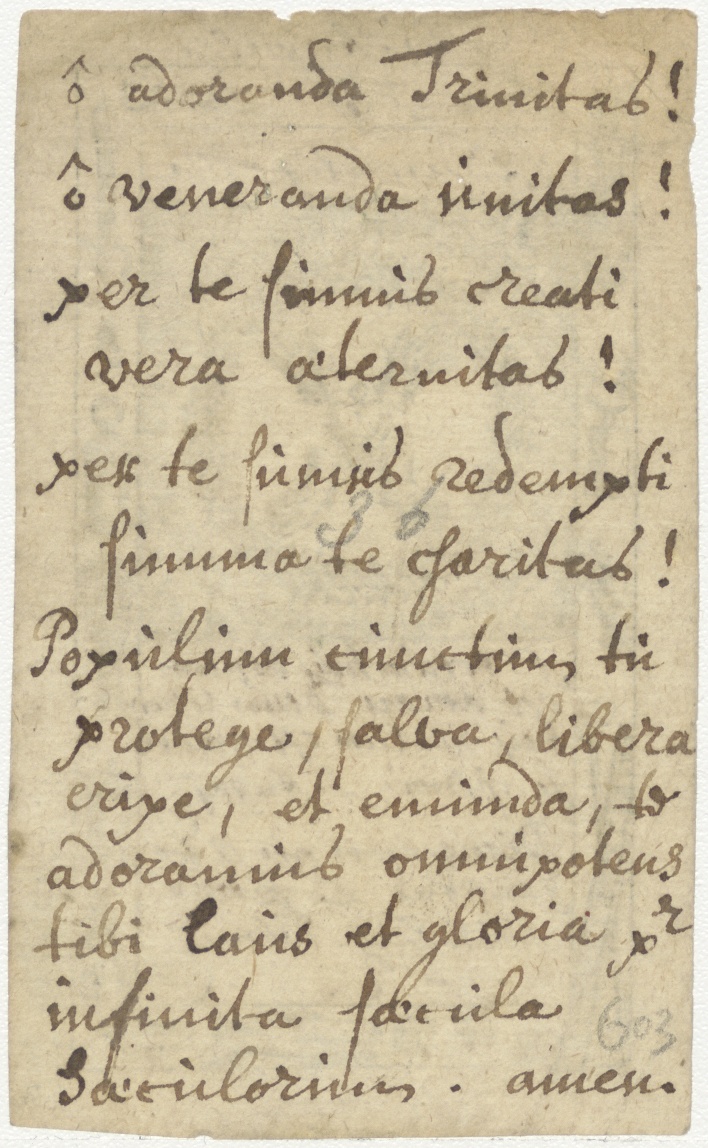 ô adoranda Trinitas!
ô veneranda unitas!
per te sumus creati
vera æternitas!
per te sumus redempti
summa te charitas!
Populum cunctum tu
protege, salva, libera
eripe, et emunda, te
adoramus omnipotens
tibi laus et gloria pr
infinita sæcula
Sæculorum. amen.
603